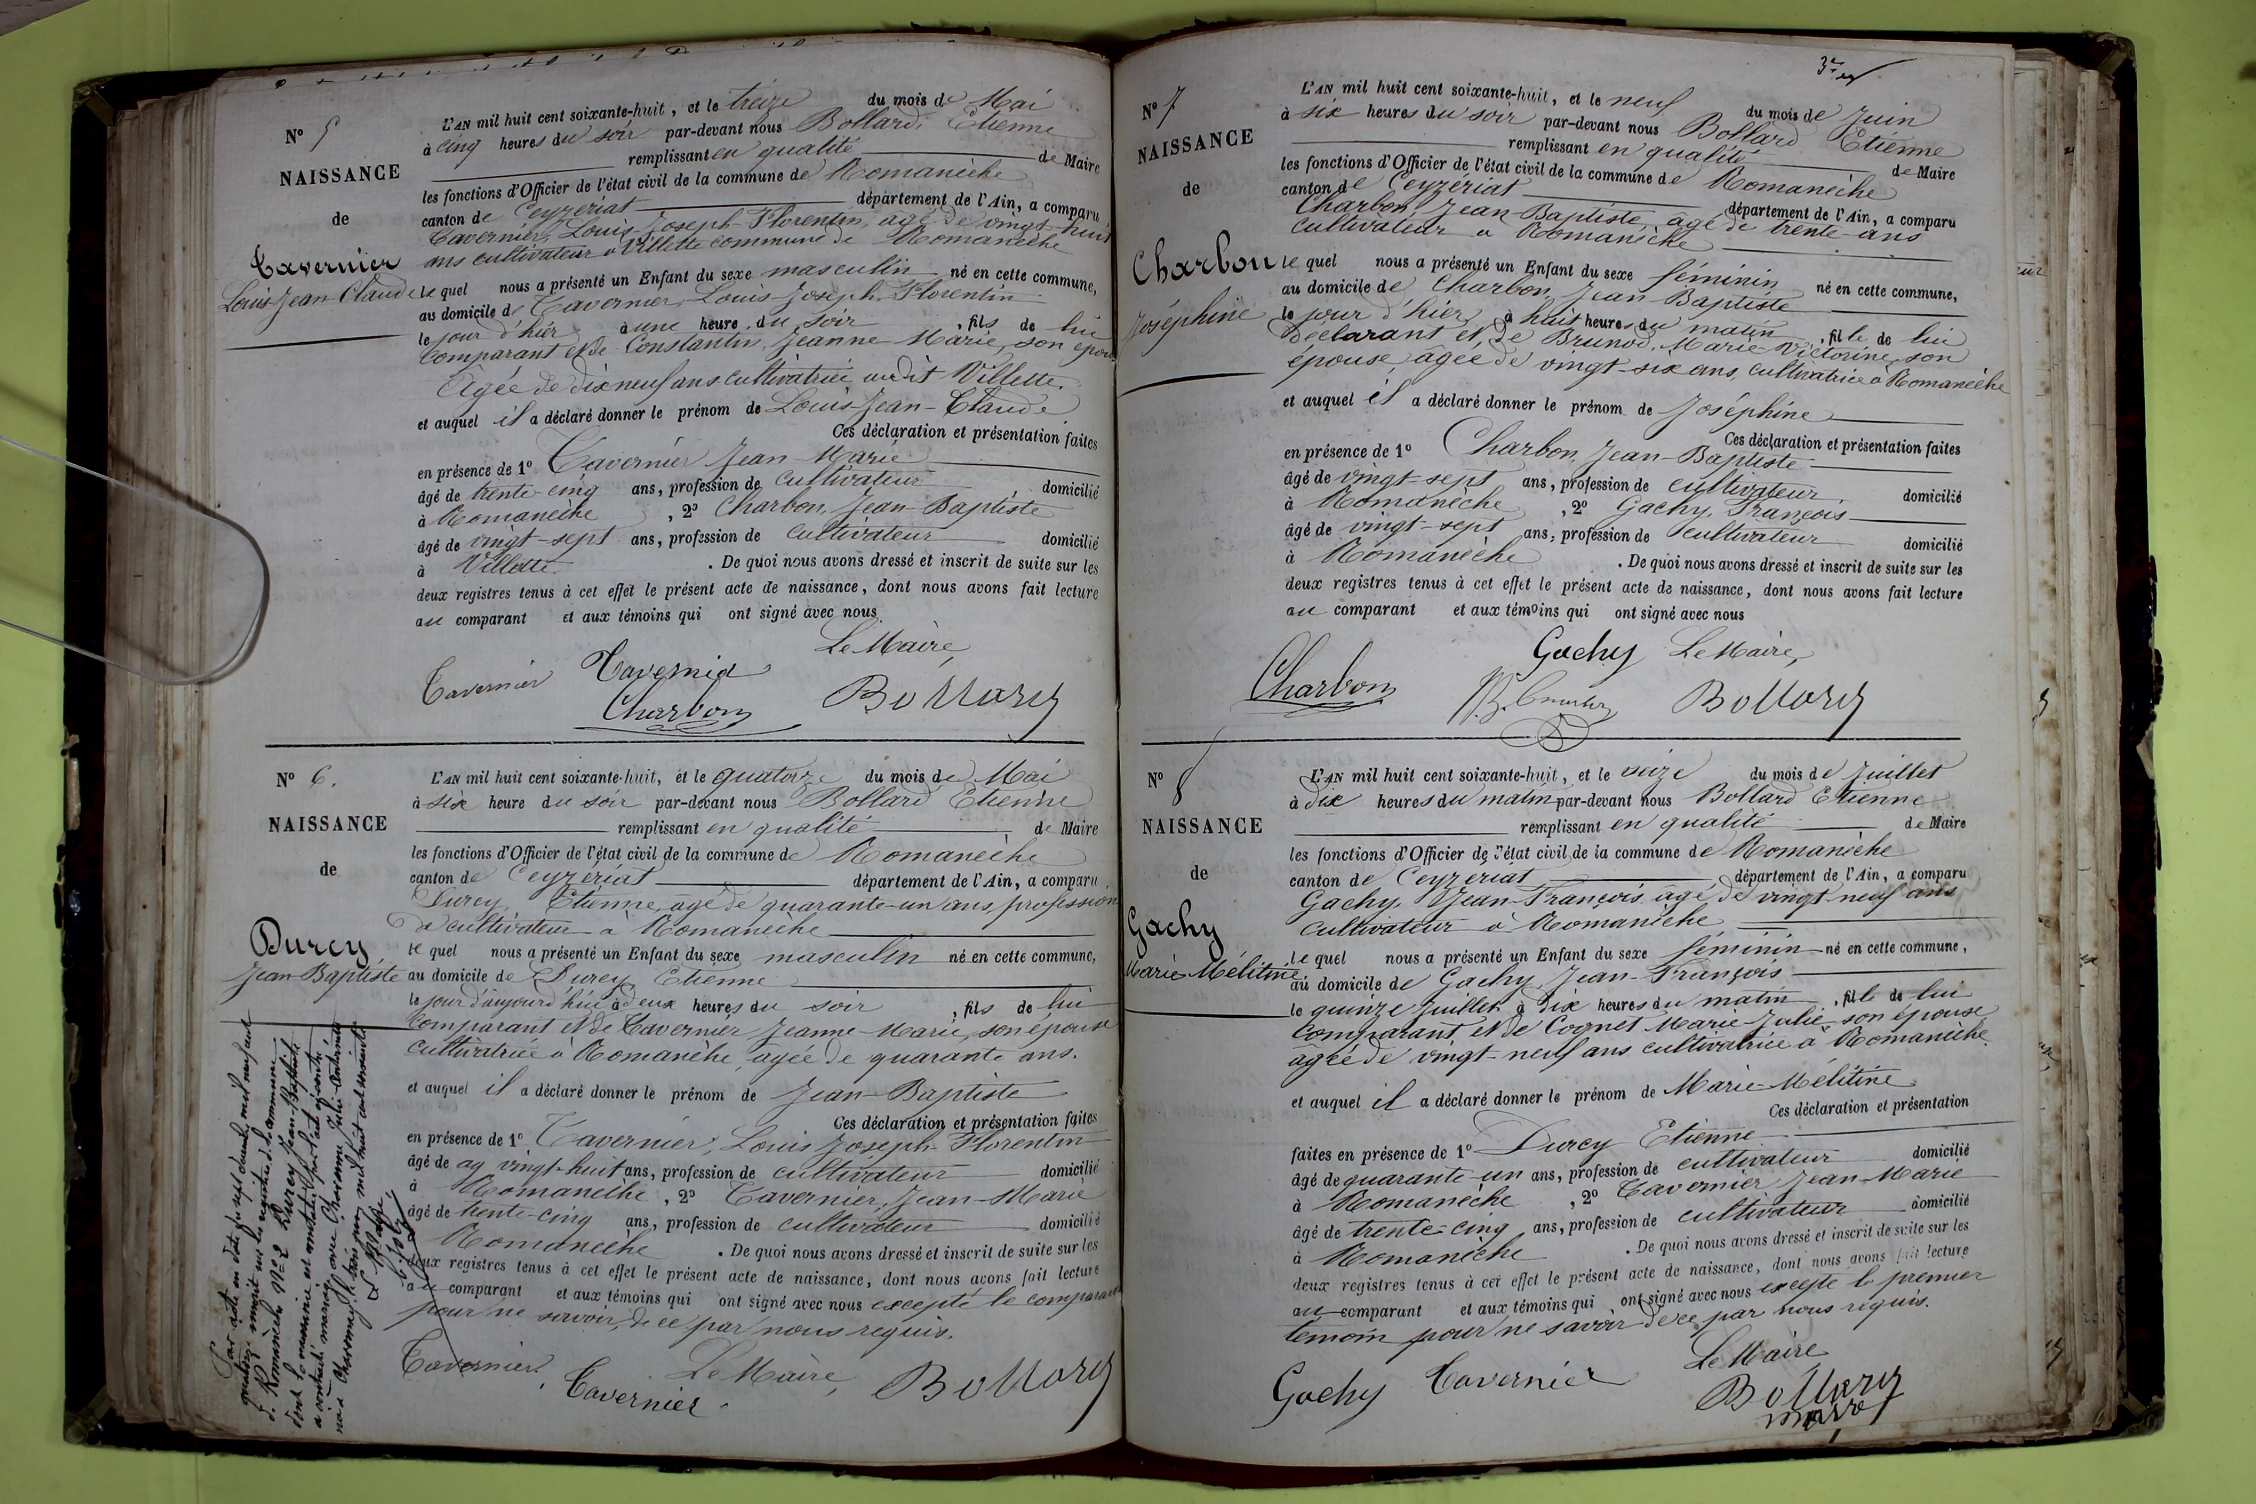 N° 5
NAISSANCE
de
Tavernier
Louis Jean-Claude
L'AN mil huit cent soixante-huit, et le treize du mois de Mai
à cinq heures du soir par-devant nous Bollard Etienne
remplissant en qualité de Maire
les fonctions d'Officier de l'état civil de la commune de Romanèche
canton de Ceyzériat département de l'Ain, a comparu
Tavernier, Louis-Joseph-Florentin, agé de vingt-huit
ans cultivateur à Villette commune de Romanèche
le quel nous a présenté un Enfant du sexe masculin né en cette commune,
au domicile de Tavernier, Louis-Joseph-Florentin
le jour d'hier à une heure du soir, fils de lui
Comparant et de Constantin, Jeanne-Marie, son épouse
Agée de dix neuf ans cultivatrice audit Villette.
et auquel il a déclaré donner le prénom de Louis Jean-Claude
Ces déclaration et présentation faites
en présence de 1° Tavernier Jean-Marie
âgé de trente-cinq ans, profession de cultivateur domicilié
à Romanèche, 2° Charbon, Jean-Baptiste
âgé de vingt-sept ans, profession de cultivateur domicilié
à Villette. De quoi nous avons dressé et inscrit de suite sur les
deux registres tenus à cet effet le présent acte de naissance, dont nous avons fait lecture
au comparant et aux témoins qui ont signé avec nous
Le Maire,
Tavernier Tavernier
Charbon Bollard
N° 6.
NAISSANCE
de
Durcy
Jean-Baptiste
L'AN mil huit cent soixante-huit, et le quatorze du mois de Mai
à six heure du soir par-devant nous Bollard Etienne
remplissant en qualité de Maire
les fonctions d'Officier de l'état civil de la commune de Romanèche
canton de Ceyzériat département de l'Ain, a comparu
Durcy, Etienne, agé de quarante-un ans, profession
de cultivateur à Romanèche
le quel nous a présenté un Enfant du sexe masculin né en cette commune,
au domicile de Durcy, Etienne
le jour d'aujourd'hui à deux heures du soir, fils de lui
Comparant et de Tavernier Jeanne-Marie, son épouse
cultivatrice à Romanèche, agée de quarante ans.
et auquel il a déclaré donner le prénom de Jean-Baptiste
Ces déclaration et présentation faites
en présence de 1° Tavernier, Louis Joseph-Florentin
âgé de ag vingt-huit ans, profession de cultivateur domicilié
à Romanèche, 2° Tavernier, Jean-Marie
âgé de trente-cinq ans, profession de cultivateur domicilié
Romanèche. De quoi nous avons dressé et inscrit de suite sur les
deux registres tenus à cet effet le présent acte de naissance, dont nous avons fait lecture
au comparant et aux témoins qui ont signé avec nous excepté le comparant
pour ne savoir, de ce par nous requis.
Tavernier. Le Maire,
Tavernier. Bollard
Par acte en date du sept
quatorze, inscrit sur les registres de la commune
de Romanèche N° 2 Durcy Jean-Baptiste
dont la naissance est constatée par l'acte ci-contre
a contracté mariage avec Julie
née à le trois juin mil huit cent soixante
Le Maire
N° 7
NAISSANCE
de
Charbon
Joséphine
L'AN mil huit cent soixante-huit, et le neuf du mois de Juin
à six heures du soir par-devant nous Bollard Etienne
remplissant en qualité de Maire
les fonctions d'Officier de l'état civil de la commune de Romanèche
canton de Ceyzériat département de l'Ain, a comparu
Charbon, Jean-Baptiste, agé de trente-ans
cultivateur à Romanèche
le quel nous a présenté un Enfant du sexe féminin né en cette commune,
au domicile de Charbon, Jean-Baptiste
le jour d'hier, à huit heures du matin, fille de lui
Déclarant et de Brunod, Marie-Victorine, son
épouse, agée de vingt-six ans, cultivatrice à Romanèche
et auquel il a déclaré donner le prénom de Joséphine
Ces déclaration et présentation faites
en présence de 1° Charbon Jean-Baptiste
âgé de vingt-sept ans, profession de cultivateur domicilié
à Romanèche, 2° Gachy, François
âgé de vingt-sept ans, profession de cultivateur domicilié
à Romanèche. De quoi nous avons dressé et inscrit de suite sur les
deux registres tenus à cet effet le présent acte de naissance, dont nous avons fait lecture
au comparant et aux témoins qui ont signé avec nous
Gachy Le Maire,
Charbon Bollard
N° 8
NAISSANCE
de
Gachy
Marie-Mélitine
L'AN mil huit cent soixante-huit, et le seize du mois de Juillet
à dix heures du matin par-devant nous Bollard Etienne
remplissant en qualité de Maire
les fonctions d'Officier de l'état civil de la commune de Romanèche
canton de Ceyzériat département de l'Ain, a comparu
Gachy, Jean-François agé de vingt-neuf ans
cultivateur à Romanèche
le quel nous a présenté un Enfant du sexe féminin né en cette commune,
au domicile de Gachy, Jean-François
le quinze Juillet à dix heures du matin, fille de lui
Comparant, et de Cognet Marie-Julie son épouse
agée de vingt-neuf ans cultivatrice à Romanèche.
et auquel il a déclaré donner le prénom de Marie-Mélitine
Ces déclaration et présentation
faites en présence de 1° Durcy Etienne
âgé de quarante-un ans, profession de cultivateur domicilié
à Romanèche, 2° Tavernier Jean-Marie
âgé de trente-cinq ans, profession de cultivateur domicilié
à Romanèche. De quoi nous avons dressé et inscrit de suite sur les
deux registres tenus à cet effet le présent acte de naissance, dont nous avons fait lecture
au comparant et aux témoins qui ont signé avec nous excepté le premier
témoin pour ne savoir de ce par nous requis.
Le Maire
Gachy Tavernier Bollard